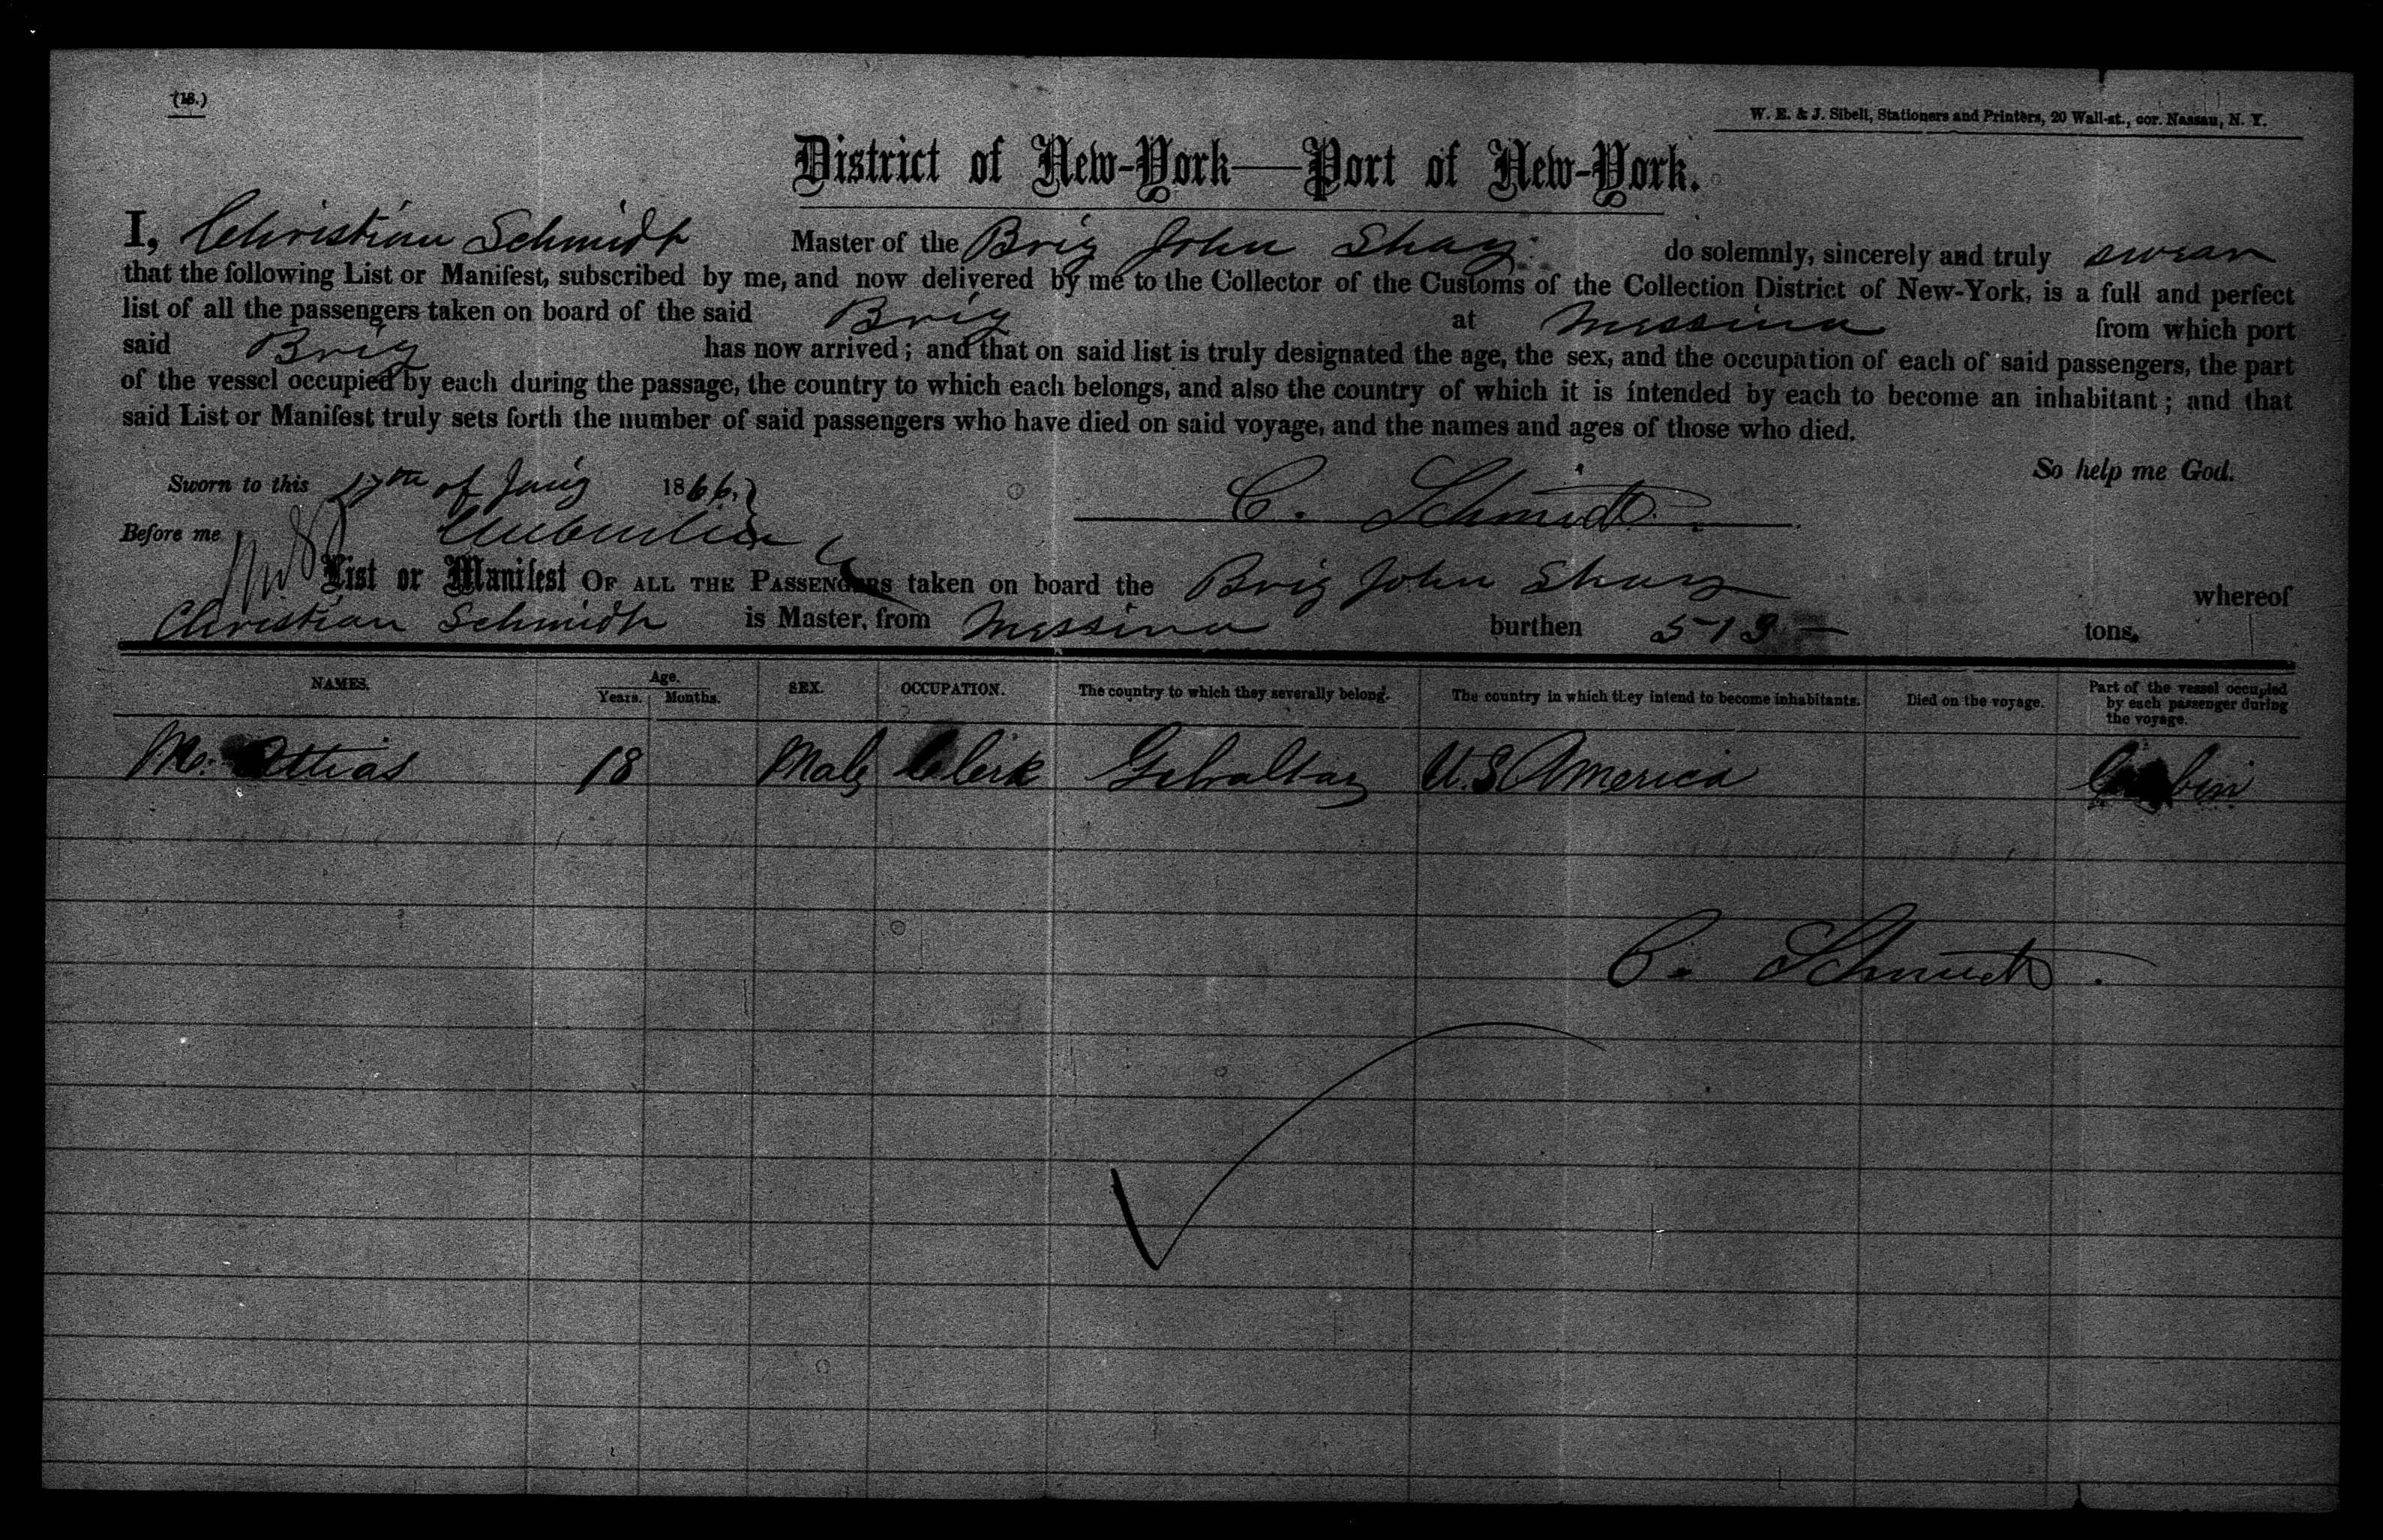 (18.)
W. E. & J. Sibell, Stationers and Printers, 20 Wall-st., cor. Nassau, N. Y.
District of New-York—Port of New-York.
I, Christian Schmidt Master of the Brig John Shay do solemnly, sincerely and truly swear
that the following List or Manifest, subscribed by me, and now delivered by me to the Collector of the Customs of the Collection District of New-York, is a full and perfect
list of all the passengers taken on board of the said Brig at Messina from which port
said Brig has now arrived; and that on said list is truly designated the age, the sex, and the occupation of each of said passengers, the part
of the vessel occupied by each during the passage, the country to which each belongs, and also the country of which it is intended by each to become an inhabitant; and that
said List or Manifest truly sets forth the number of said passengers who have died on said voyage, and the names and ages of those who died.
So help me God.
Sworn to this 17th of 1866.
C. Schmidt.
Before me
List or Manifest OF ALL THE PASSENGERS taken on board the Brig John Shay whereof
Christian Schmidt is Master, from Messina burthen 513 — tons.
NAMES. Age. Years. Months. SEX. OCCUPATION. The country to which they severally belong. The country in which they intend to become inhabitants. Died on the voyage. Part of the vessel occupied by each passenger during the voyage.
Mo: Attias 18 Male Clerk Gebraltar U.S America
C. Schmidt.